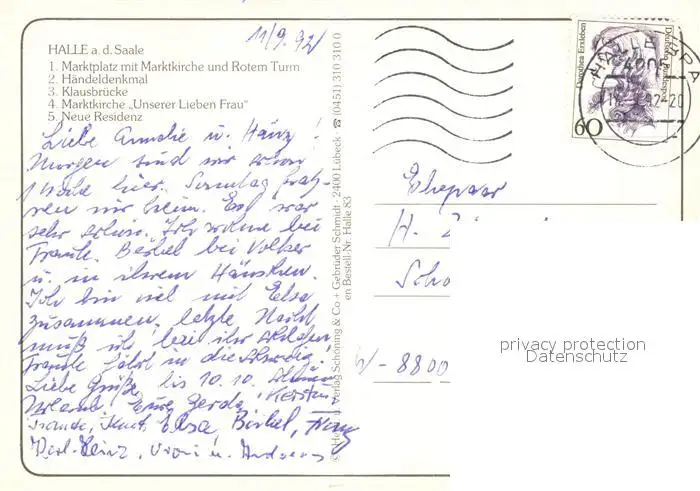 11/9.92
HALLE a. d. Saale
1. Marktplatz mit Marktkirche und Rotem Turm
2. Händeldenkmal
3. Klausbrücke
4. Marktkirche „Unserer Lieben Frau"
5. Neue Residenz
Liebe Annelie u. Heinz!
Morgen sind wir schon
1 Woche hier. Sonntag fah-
ren wir heim. Es war
sehr schön. Ich wohne bei
Traute. Bärbel bei Volker
u. in ihrem Häuschen.
Ich bin viel mit Elsa
zusammen, letzte Nacht
muß ich bei ihr schlafen,
Traute fährt in die
Liebe Grüße, bis 10.10. schönen
Urlaub Eure Gerda, Kersten,
Traude, Kurt, Elsa, Bärbel,
Karl-Heinz, u. Andreas
Verlag Schöning & Co + Gebrüder Schmidt · 2400 Lübeck ☎ (0451) 310 310 0
Bestell-Nr. Halle 83
Dorothea Erxleben
Deutsche Bundespost
60
HALLE
4005
Ehepaar
H.
Scho
W-8800
privacy protection
Datenschutz